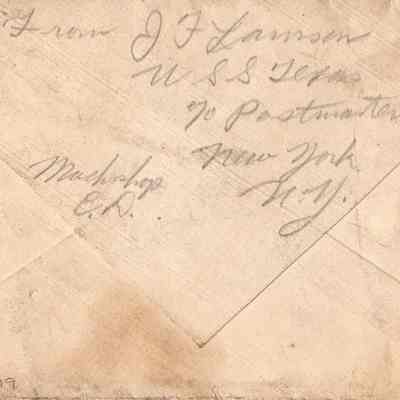 From J F Lamson
U S S Texas
℅ Postmaster
New York
N.Y.
Machshop
E.D.